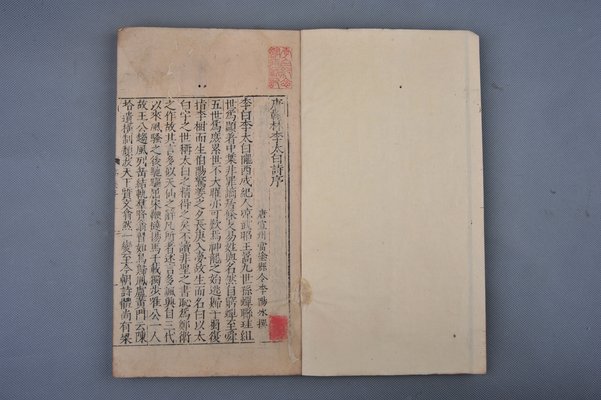 唐翰林李太白詩序
唐宣州當塗縣令李陽冰撰
李白字太白隴西成紀人涼武昭王暠九世孫蟬聯珪組
世爲顯著中葉非罪謫居條支易姓與名然自窮蟬至舜
五世爲庶累世不大曜亦可歎焉神龍之始逃歸于蜀復
指李樹而生伯陽驚姜之夕長庚入夢故生而名白以太
白字之世稱太白之精得之矣不讀非聖之書恥爲鄭衛
之作故其言多似天仙之辭凡所著述言多諷興自三代
以來風騷之後馳驅屈宋鞭撻揚馬千載獨步唯公一人
故王公趨風列岳結軌群賢翕習如鳥歸鳳盧黃門云陳
拾遺橫制頹波天下質文翕然一變至今朝詩體尚有梁